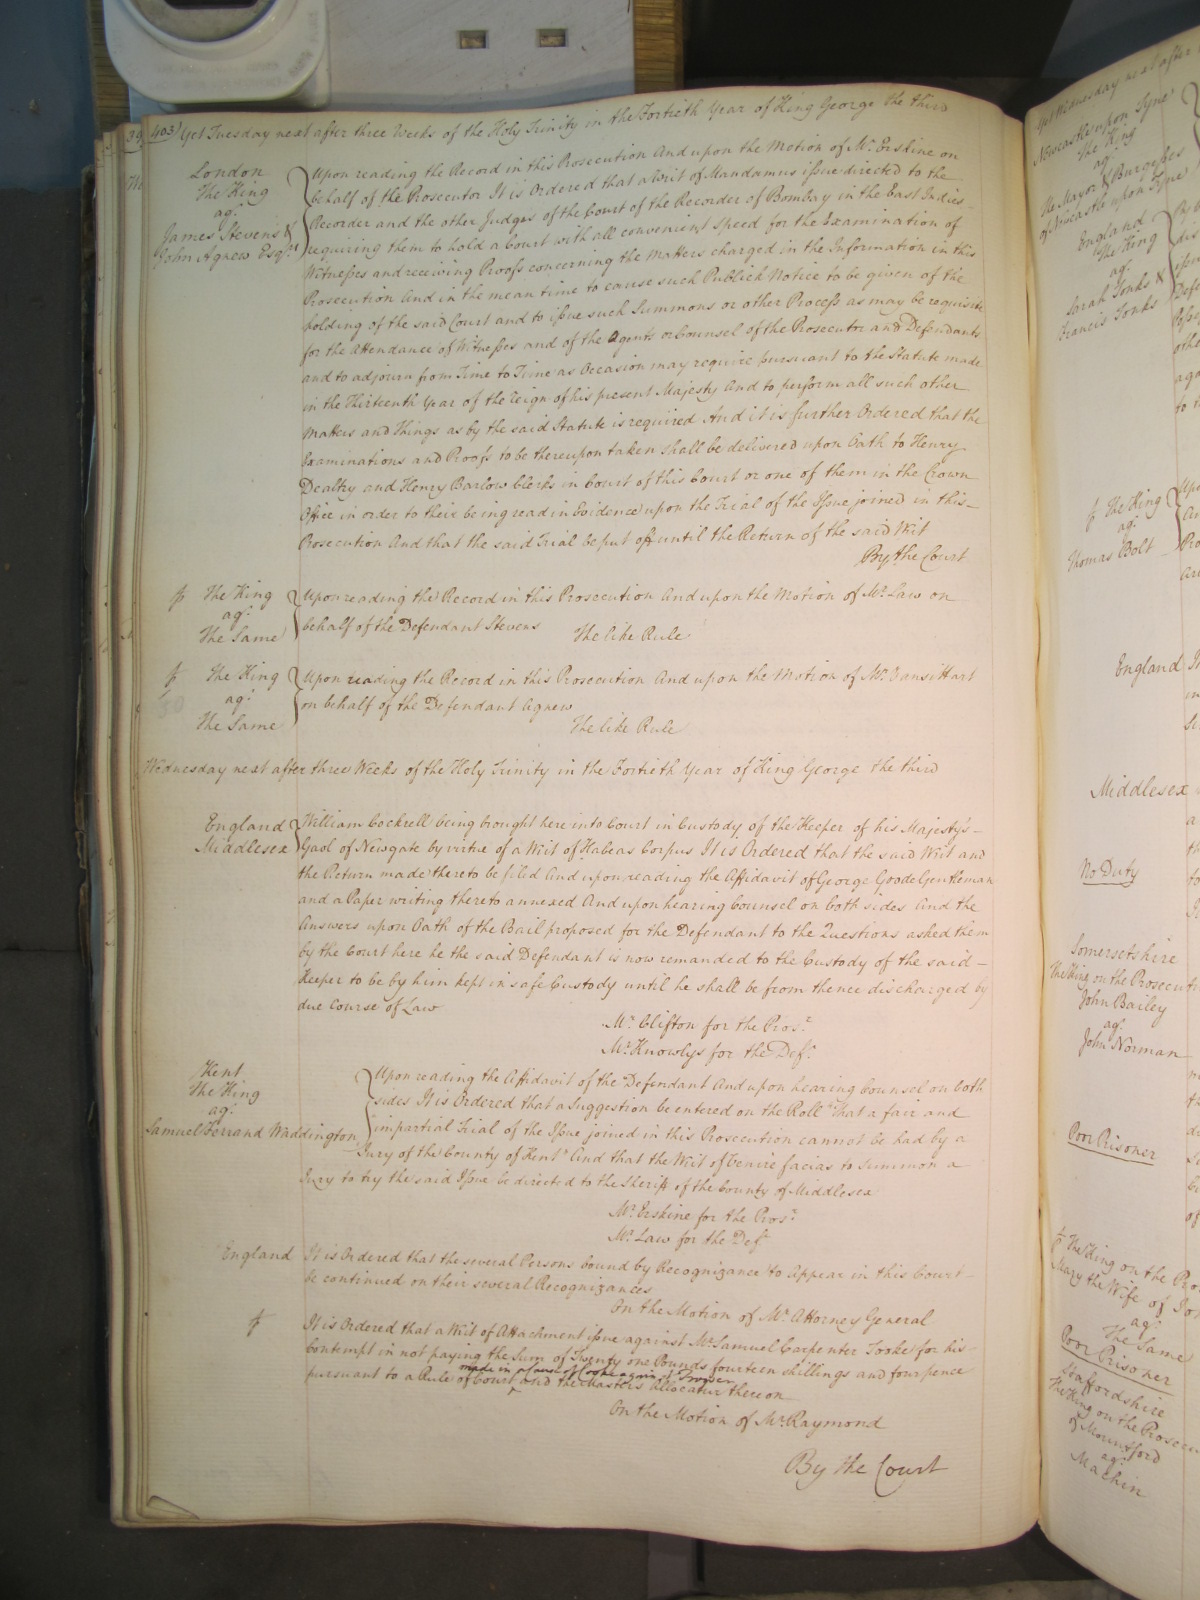 403) Yet Tuesday next after three Weeks of the Holy Trinity in the Fortieth Year of King George the third
London
The King
agt
James Stevens &
John Agnew Esqrs
Upon reading the Record in this Prosecution And upon the Motion of Mr Erskine on
behalf of the Prosecutor It is Ordered that a Writ of Mandamus issue directed to the
Recorder and the other Judges of the Court of the Recorder of Bombay in the East Indies
requiring them to hold a Court with all convenient speed for the Examination of
Witnesses and receiving Proofs concerning the Matters charged in the Information in this
Prosecution And in the mean time to cause such Publick Notice to be given of the
holding of the said Court and to issue such Summons or other Process as may be requisite
for the Attendance of Witnesses and of the Agents or Counsel of the Prosecutor and Defendants
and to adjourn from Time to Time as Occasion may require pursuant to the Statute made
in the Thirteenth Year of the reign of his present Majesty And to perform all such other
Matters and Things as by the said Statute is required And it is further Ordered that the
Examinations and Proofs to be thereupon taken shall be delivered upon Oath to Henry
Dealtry and Henry Barlow Clerks in Court of this Court or one of them in the Crown
Office in order to their being read in Evidence upon the Trial of the Issue joined in this
Prosecution And that the said Trial be put off until the Return of the said Writ
By the Court
The King
agt
The Same
Upon reading the Record in this Prosecution And upon the Motion of Mr Law on
behalf of the Defendant Stevens The like Rule
The King
agt
The Same
Upon reading the Record in this Prosecution And upon the Motion of Mr Vansittart
on behalf of the Defendant Agnew
The like Rule
Wednesday next after three Weeks of the Holy Trinity in the Fortieth Year of King George the third
England
Middlesex
William Cockrell being brought here into Court in Custody of the Keeper of his Majesty's
Gaol of Newgate by virtue of a Writ of Habeas Corpus It is Ordered that the said Writ and
the Return made thereto be filed And upon reading the Affidavit of George Goode Gentleman
and a Paper writing thereto annexed And upon hearing Counsel on both sides And the
Answers upon Oath of the Bail proposed for the Defendant to the Questions asked them
by the Court here he the said Defendant is now remanded to the Custody of the said
Keeper to be by him kept in safe Custody until he shall be from thence discharged by
due Course of Law
Mr Clifton for the Prosr
Mr Knowlys for the Deft
Kent
The King
agt
Samuel Ferrand Waddington
Upon reading the Affidavit of the Defendant And upon hearing Counsel on both
sides It is Ordered that a Suggestion be entered on the Roll "That a fair and
impartial Trial of the Issue joined in this Prosecution cannot be had by a
Jury of the County of Kent" And that the Writ of Venire facias to summon a
Jury to try the said Issue be directed to the Sheriff of the County of Middlesex
Mr Erskine for the Prosr
Mr Law for the Deft
England
It is Ordered that the several Persons bound by Recognizance to appear in this Court
be continued on their several Recognizances
On the Motion of Mr Attorney General
It is Ordered that a Writ of Attachment issue against Mr Samuel Carpenter Tooke for his
Contempt in not paying the Sum of Twenty one Pounds fourteen shillings and four pence
made in a Cause of Cooke against
pursuant to a Rule of Court and the Masters Allocatur thereon
On the Motion of Mr Raymond
By the Court
Yet Wednesday next after
Newcastle upon Tyne
The King
agt
The Mayor & Burgesses
of Newcastle upon Tyne
England
The King
agt
Sarah Tonks &
Francis Tonks
The King
agt
Thomas Bolt
England
Middlesex
No Duty
Somersetshire
The King on the Prosecut
John Bailey
agt
John Norman
Poor Prisoner
The King on the Pro
Mary the Wife of
agt
The Same
Poor Prisoner
Staffordshire
The King on the Prosecu
of Mountford
agt
Machin